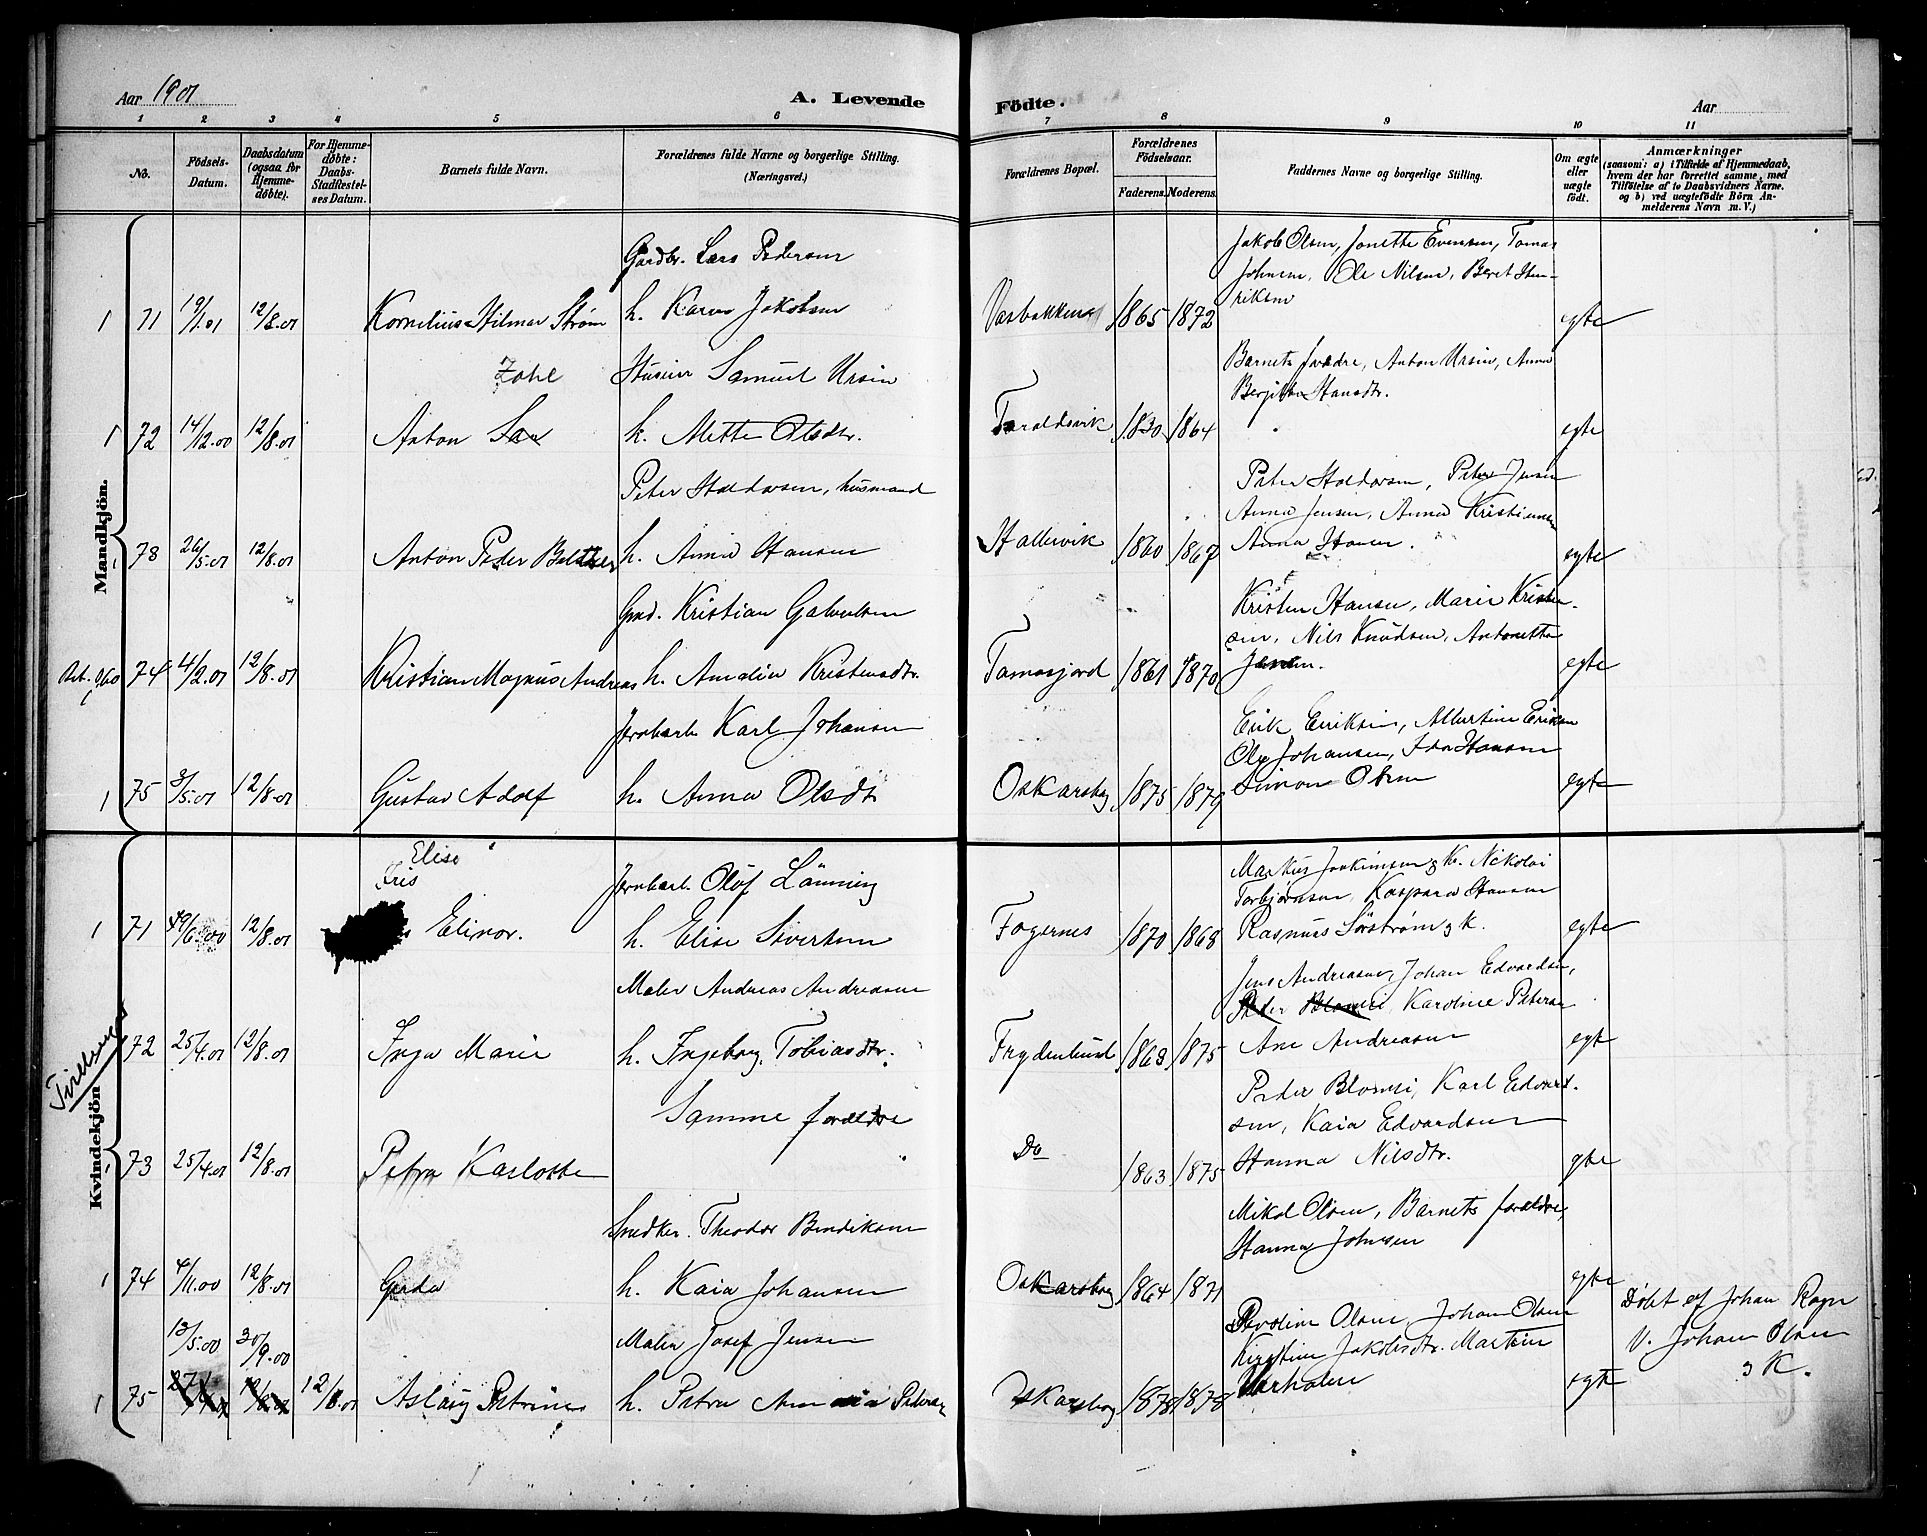 Aar 1901
A. Levende
Fødte.
Aar
1 2 3 4 5 6 7 8 9 10 11
No.
Fødsels-Datum.
Daabsdatum (ogsaa for Hjemme-døbte).
For Hjemme-døbte: Daabs-Stadfæstel-ses Datum.
Barnets fulde Navn.
Forældrenes fulde Navne og borgerlige Stilling. (Næringsvei.)
Forældrenes Bopæl.
Forældrenes Fødselsaar.
Faderens. Moderens.
Faddernes Navne og borgerlige Stilling.
Om ægte eller uægte født.
Anmærkninger
(saasom: a) i Tilfælde af Hjemmedaab,
hvem der har forrettet samme, med
Tilføielse af to Daabsvidners Navne.
og b) ved uægtefødte Börn An-
melderens Navn m. V.)
Mandkjön.
Gaardbr. Lars Pedersen
Jakob Olsen, Jonette Evensen, Tomas
Johnsen, Ole Nilsen, Beret Hen-
riksen
1 71 19/1.01 12/8.01 Kornelius Hilmar Strøm h. Karen Jakobsen 1865 1872 egte
Zahl Huseier Samuel Ursin
Barnets forældre, Anton Ursin, Anna
Bergitte Hansdtr.
1 72 14/12.00 12/8.01 Anton h. Mette Olsdtr. Taraldsvik 1830 1864 egte
Peter Haldorsen, husmand
Peter Haldorsen, Peter Jensen
Anna Jensen, Anna Kristiansen
1 78 26/5.01 12/8.01 Anton Peder h. Anna Hansen Hallevik 1860 1867 Anna Hansen. egte
Kristian
Kristen Hansen, Marie Kristen-
sen, Nils Knudsen, Antonette
74 4/2.01 12/8.01 Kristian Magnus Andreas h. Amalia Kristensdtr. 1861 1870 Jensen. egte
Jernbarb. Karl Johansen
Erik Eriksen, Albertine Eriksen
Ole Johansen, Ida Hansen
1 75 3/5.01 12/8.01 Gustav Adolf h. Anna Olsdtr Oskarsborg 1875 1879 Simon Olsen egte
Kvindekjön
Elise
Iris
Jernbarb. Olof Länning
Markus Joakimsen & K. Nikolai
Torbjørnsen, Kaspara Hansen
1 71 12/8.01 Elinor. h. Elise Sivertsen Fagernes 1870 1868 Rasmus Sørstrøm & K. egte
Maler Andreas Andreasen
Jens Andreasen, Johan Edvardsen,
Peder Blomsi, Karoline Petersen
Tvillinger
72 25/4.01 12/8.01 Inga Marie h. Ingeborg Tobiasdtr. Frydenlund 1863 1875 Ane Andreasen egte
Peder Blomsi, Karl Edvard-
sen, Kaia Edvardsen
Samme forældre
73 25/4.01 12/8.01 Petra Karlotte Do 1863 1875 Hanna Nilsdtr. egte
Snedker. Theodor Bendiksen
Mikal Olsen, Barnets forældre,
Hanna Johnsen
1 74 4/11.00 12/8.01 Gerda h. Kaia Johansen Oskarsborg 1864 1871 egte
13/5.00 30/9.00 Maler Josef Jensen
Olsen, Johan Olsen
Kirstine Jakobsdtr. Martin
Døbt af Johan
V. Johan Olsen
& K.
1 75 12/8.01 Aslaug Petrine h. Petra Pedersen Oskarsborg 1878 1878 egte